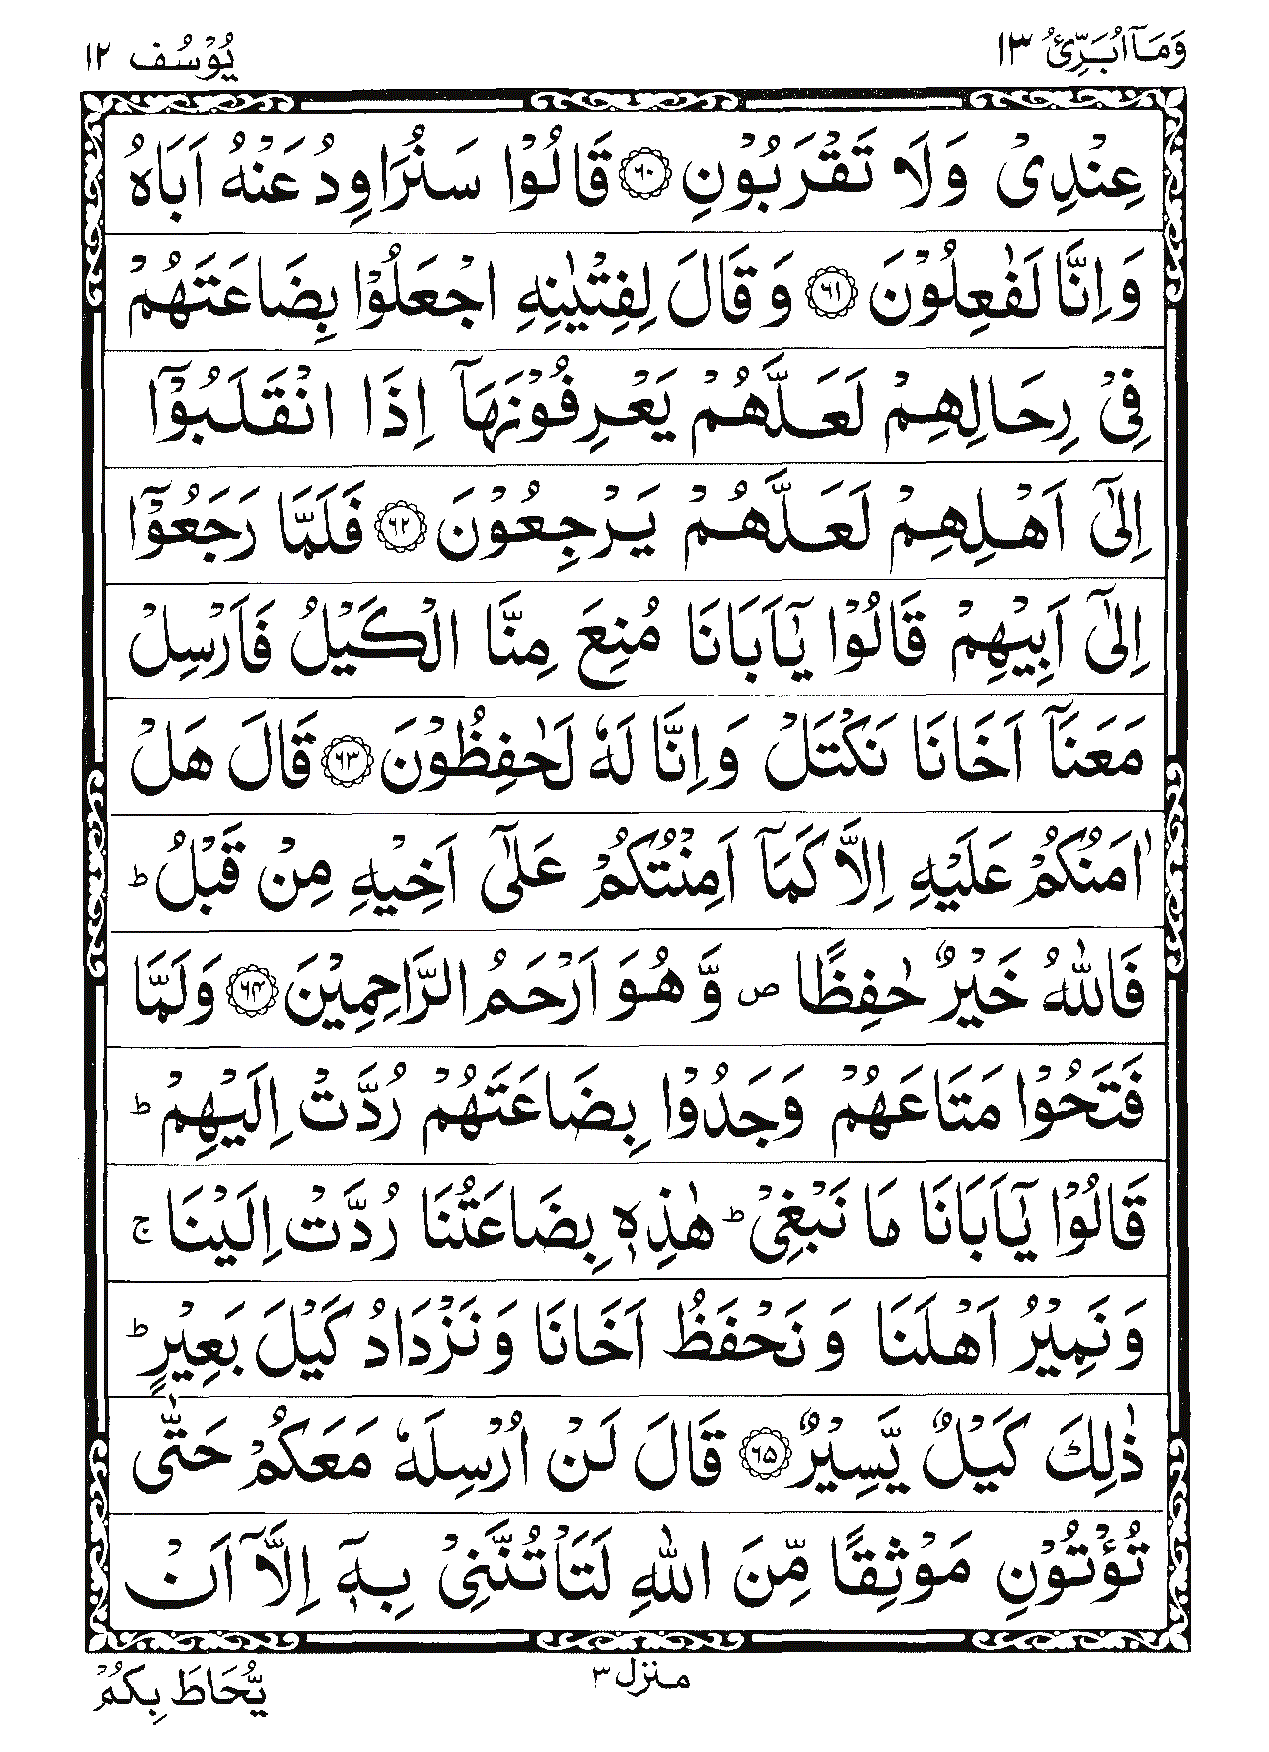 وَمَاۤ اُبَرِّئُ ١٣
يُوْسُف ١٢
عِنْدِیْ وَلَا تَقْرَبُوْنِ ﴿٦٠﴾ قَالُوْا سَنُرَاوِدُ عَنْهُ اَبَاهُ
وَاِنَّا لَفٰعِلُوْنَ ﴿٦١﴾ وَقَالَ لِفِتْيٰنِهِ اجْعَلُوْا بِضَاعَتَهُمْ
فِیْ رِحَالِهِمْ لَعَلَّهُمْ يَعْرِفُوْنَهَاۤ اِذَا انْقَلَبُوْۤا
اِلٰۤی اَهْلِهِمْ لَعَلَّهُمْ يَرْجِعُوْنَ ﴿٦٢﴾ فَلَمَّا رَجَعُوْۤا
اِلٰۤی اَبِيْهِمْ قَالُوْا يٰۤاَبَانَا مُنِعَ مِنَّا الْكَيْلُ فَاَرْسِلْ
مَعَنَاۤ اَخَانَا نَكْتَلْ وَاِنَّا لَهٗ لَحٰفِظُوْنَ ﴿٦٣﴾ قَالَ هَلْ
اٰمَنُكُمْ عَلَيْهِ اِلَّا كَمَاۤ اَمِنْتُكُمْ عَلٰۤی اَخِيْهِ مِنْ قَبْلُ ؕ
فَاللّٰهُ خَيْرٌ حٰفِظًا ص وَّهُوَ اَرْحَمُ الرَّاحِمِيْنَ ﴿٦٤﴾ وَلَمَّا
فَتَحُوْا مَتَاعَهُمْ وَجَدُوْا بِضَاعَتَهُمْ رُدَّتْ اِلَيْهِمْ ؕ
قَالُوْا يٰۤاَبَانَا مَا نَبْغِیْ ؕ هٰذِهٖ بِضَاعَتُنَا رُدَّتْ اِلَيْنَا ۚ
وَنَمِيْرُ اَهْلَنَا وَنَحْفَظُ اَخَانَا وَنَزْدَادُ كَيْلَ بَعِيْرٍ ؕ
ذٰلِكَ كَيْلٌ يَّسِيْرٌ ﴿٦٥﴾ قَالَ لَنْ اُرْسِلَهٗ مَعَكُمْ حَتّٰی
تُؤْتُوْنِ مَوْثِقًا مِّنَ اللّٰهِ لَتَاْتُنَّنِیْ بِهٖۤ اِلَّاۤ اَنْ
منزل ٣
يُّحَاطَ بِكُمْ